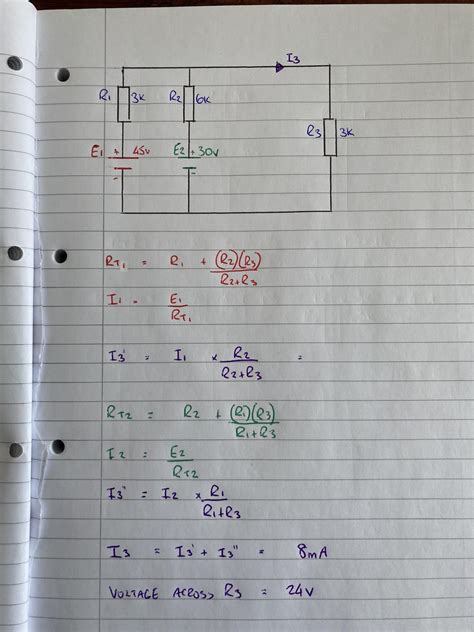 I3
R1 3K R2 6K
R3 3K
E1 + 45V E2 + 30V
- -
RT1 = R1 + (R2)(R3)
R2+R3
I1 = E1
RT1
I3' = I1 x R2 =
R2+R3
RT2 = R2 + (R1)(R3)
R1+R3
I2 = E2
RT2
I3" = I2 x R1
R1+R3
I3 = I3' + I3" = 8mA
VOLTAGE ACROSS R3 = 24V